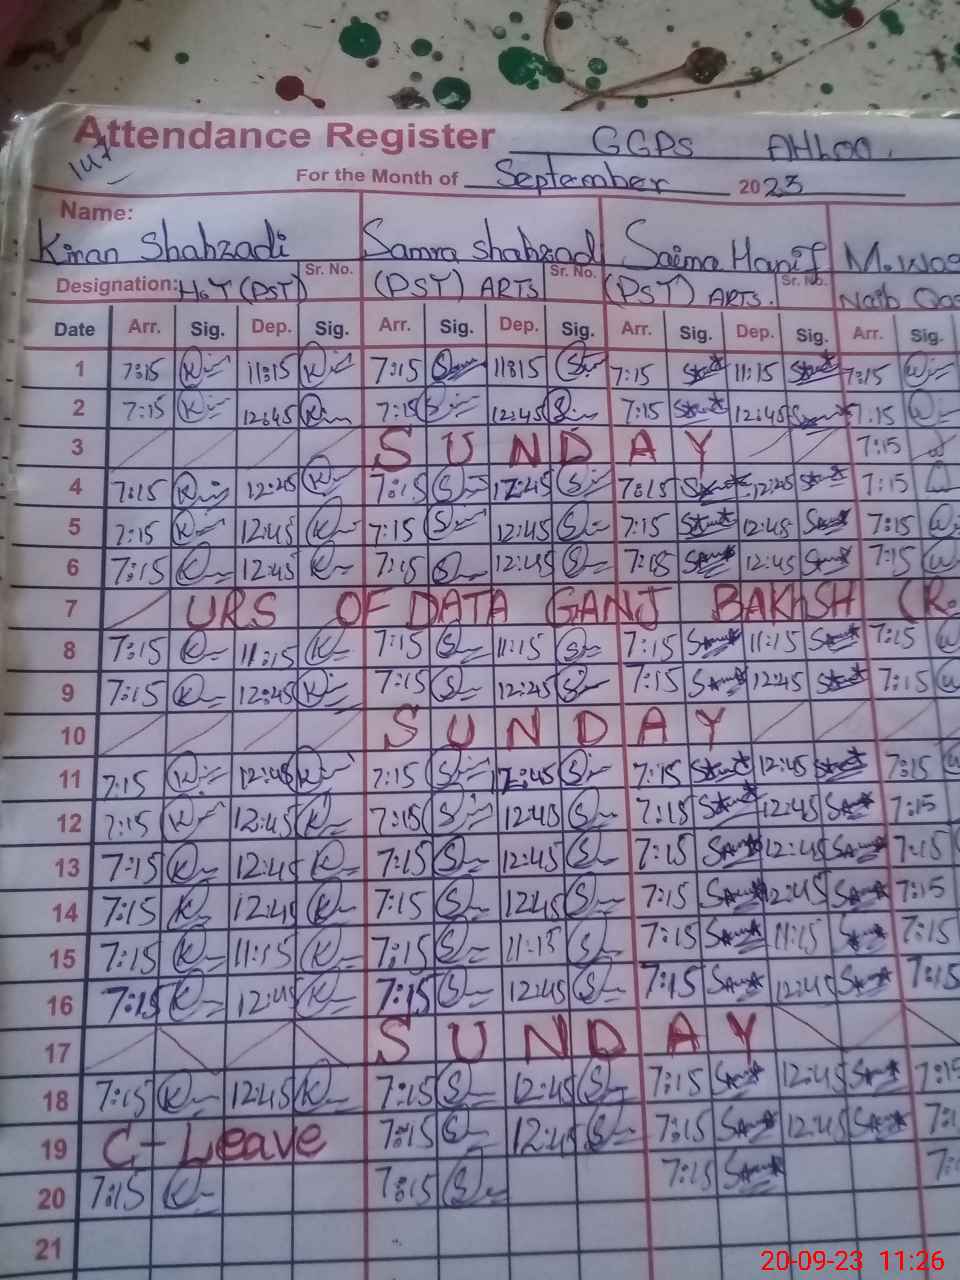 Attendance Register GGPS AHLOO.
For the Month of September 2023
Name:
Kiran Shahzadi Samra Shahzad Saima Hanif
Designation: H.T (PST) Sr. No. (PST) ARTS Sr. No. (PST) ARTS. Sr. No. Naib
Date Arr. Sig. Dep. Sig. Arr. Sig. Dep. Sig. Arr. Sig. Dep. Sig. Arr. Sig.
1 7:15 11:15 7:15 11:15 7:15 11:15 7:15
2 7:15 12:45 7:15 12:45 7:15 12:45 7:15
3 SUNDAY 7:15
4 7:15 12:45 7:15 12:45 7:15 12:45 7:15
5 7:15 12:45 7:15 12:45 7:15 12:45 7:15
6 7:15 12:45 7:15 12:45 7:15 12:45 7:15
7 URS OF DATA GANJ BAKHSH (R.
8 7:15 11:15 7:15 11:15 7:15 11:15 7:15
9 7:15 12:45 7:15 12:45 7:15 12:45 7:15
10 SUNDAY
11 7:15 12:45 7:15 12:45 7:15 12:45 7:15
12 7:15 12:45 7:15 12:45 7:15 12:45 7:15
13 7:15 12:45 7:15 12:45 7:15 12:45 7:15
14 7:15 12:45 7:15 12:45 7:15 12:45 7:15
15 7:15 11:15 7:15 11:15 7:15 11:15 7:15
16 7:15 12:45 7:15 12:45 7:15 12:45 7:15
17 SUNDAY
18 7:15 12:45 7:15 12:45 7:15 12:45 7:15
19 C-Leave 7:15 12:45 7:15 12:45
20 7:15 7:15 7:15
21
20-09-23 11:26